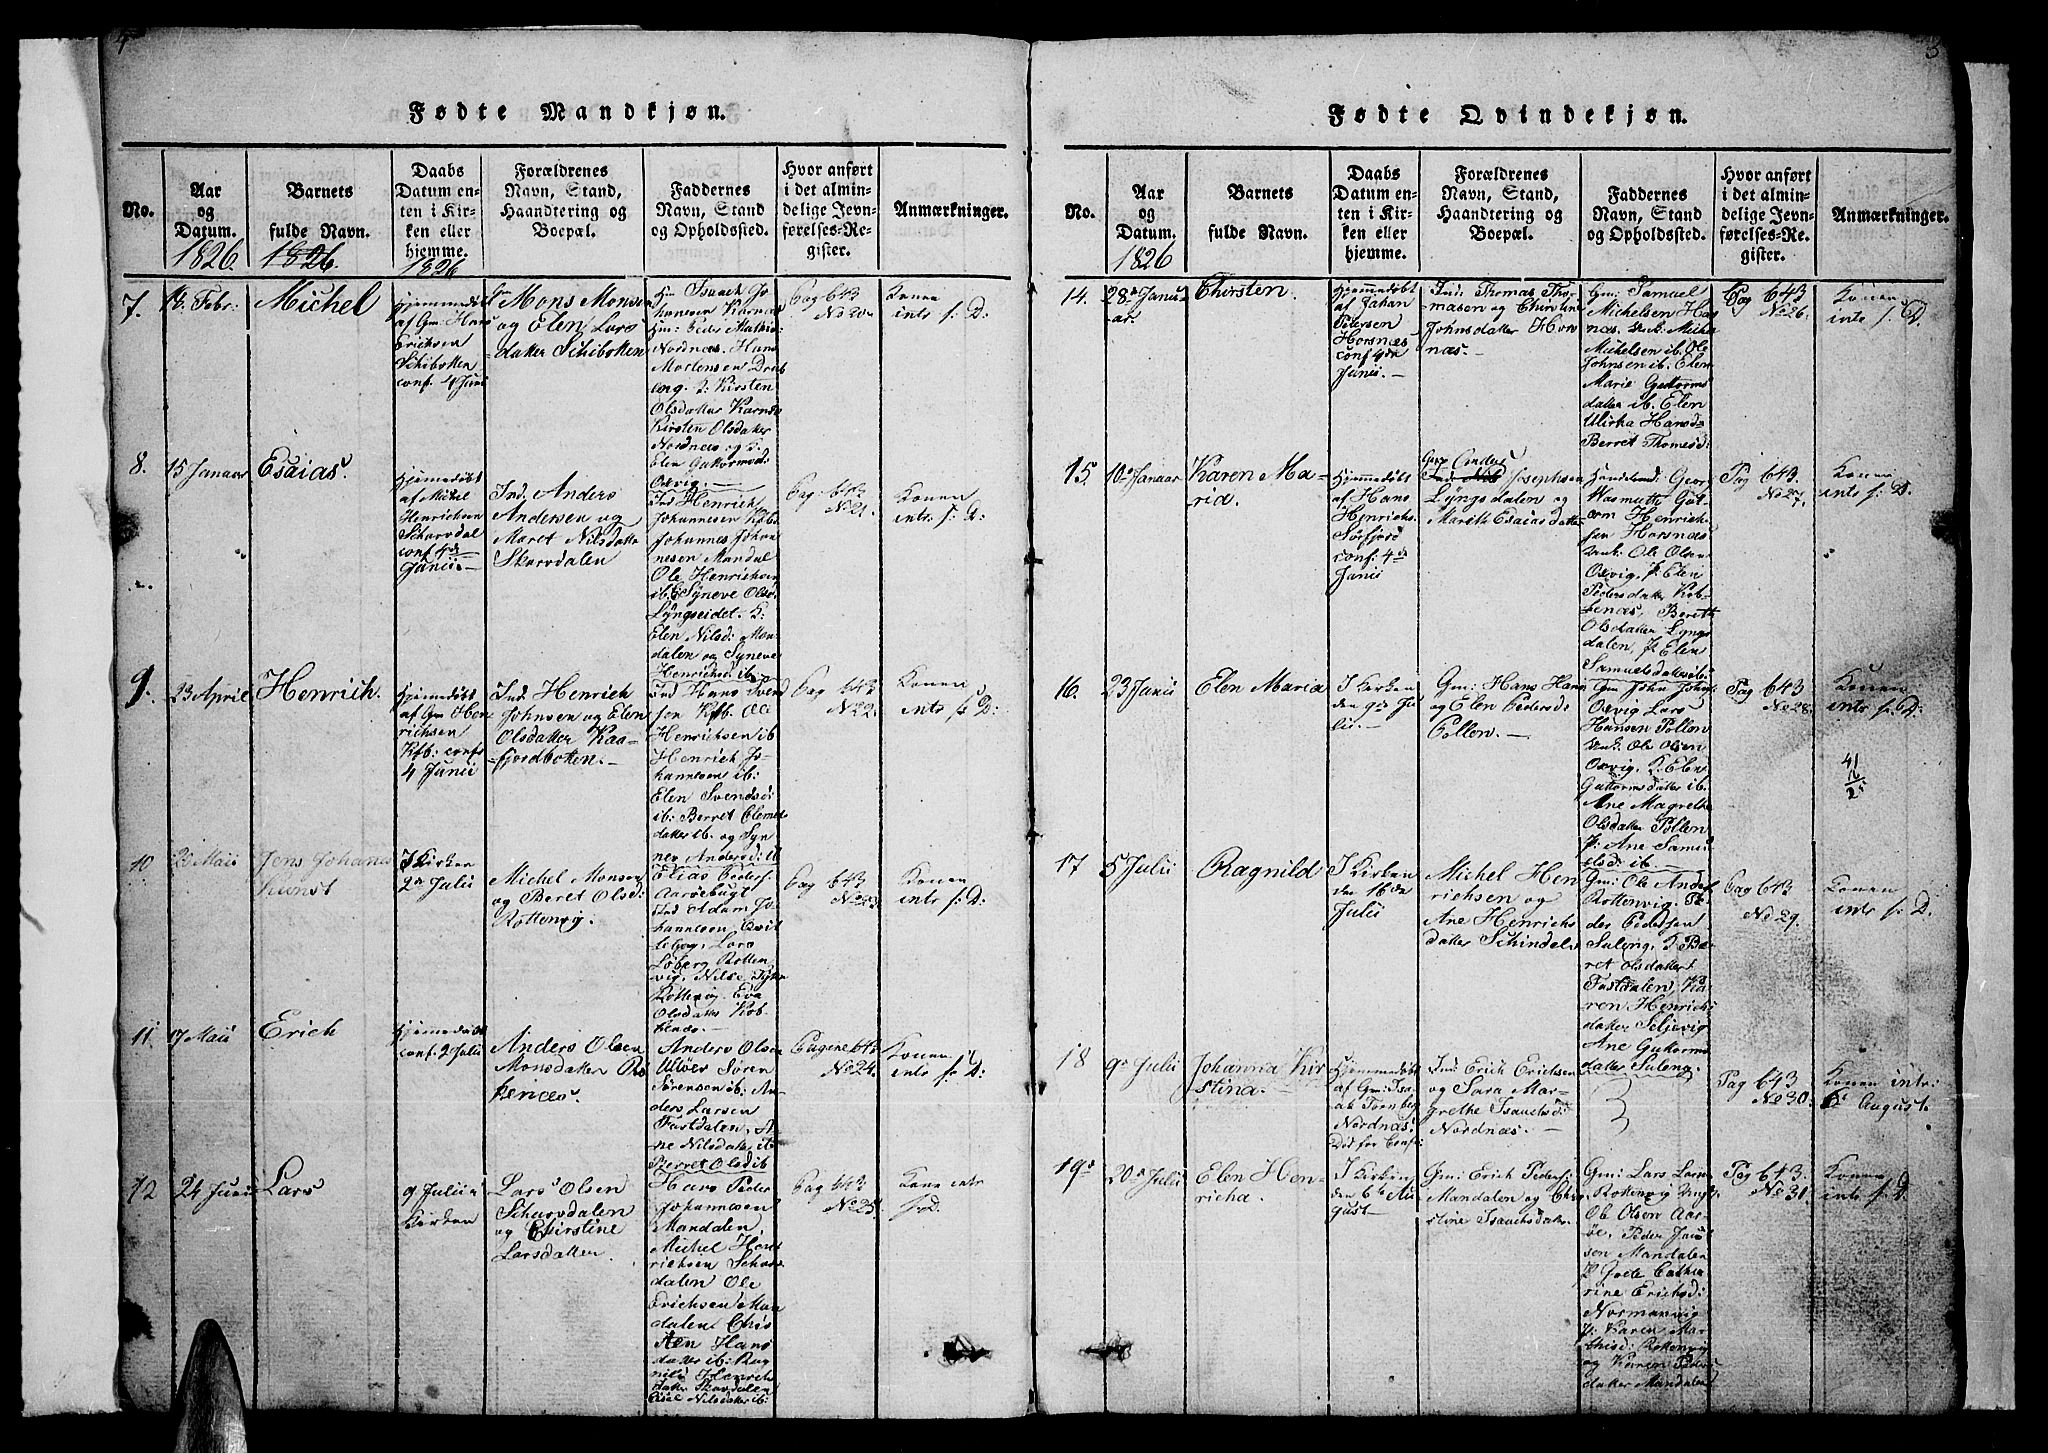 3
Fødte Mandkjøn.
No.
Aar
og
Datum.
1826.
Barnets
fulde Navn.
1826.
Daabs
Datum en-
ten i Kir-
ken eller
hjemme.
1826
Forældrenes
Navn, Stand,
Haandtering og
Boepæl.
Faddernes
Navn, Stand
og Opholdssted.
Hvor anført
i det almin-
delige Jevn-
førelses-Re-
gister.
Anmærkninger.
7.
Febr:
Michel
Hjemmedöbt
af Gm: Hans
Ericksen
Schibotten
conf. 4 Junii
Mons Monsen
og Elen Lars
datter Schibotten
Isaach Jo
hannesen Karnæs
Gm: Peder Mathis
Nordnæs. Hans
Mortensen
Kirsten
Olsdatter Karnæs
Kirsten Olsdatter
Nordnæs og
Elen Guttormsd:
Oxvig.
Pag 643
No 20.
Konen
intr f: D:
8.
15 Januar
Esaias.
Hjemmedöbt
af Michel
Henrichsen
Scharvdal
conf 4de
Junii.
Ind. Anders
Andersen og
Maret Nilsdatter
Skarvdalen
Ind Henrich
Johannesen Kfb.
Johannes Johan
nesen Mandal
Ole Henrichsen
ib. Syneve Olsd.
Lyngseidet. K:
Elen Nilsd: Man
dalen og Syneve
Henrichsd ib.
Pag 643
No 21.
Konen
intr f: D:
9.
23 April
Henrich.
Hjemmedöbt
af Gm Hen
richsen
Kfb: conf
4 Junii
Ind. Henrich
Johnsen og Elen
Olsdatter Kaa-
fjordbotten.
Ind Hans Svend
sen Kfb. Ole
Henrichsen ib
Henrich Jo
hannesen ib:
Elen Svendsd:
ib: Berret Clemet
datter ib. og Syn
nev Andersd: ib
Pag 643
No 22.
Konen
intr f: D:
10
Maii
Jens Johanes
Kunst
I Kirken
2 Julii
Michel Monsen
og Beret Olsd:
Rottenvig.
Elias Peders.
Aarøebugt
Ind Adam Jo
hannesen
Lars
Løberg Rotten
vig. Nilse
Rottenvig. Eva
Olsdatter Kob
benæs.
Pag 643
No 23.
Konen
intr f: D:
11.
17 Maii
Erich
Hjemmedöbt
conf. 2 Julii
Anders Olsen
Monsdatter
Anders Olsen
Ulløer Søren
Sørensen ib: An
ders Larsen
Fastdalen, A
ne Nilsdatter ib
Berret Olsd ib
Pagene 643
No 24.
Konen
intr f: D:
12
24 Junii
Lars
9 Julii i
Kirken
Lars Olsen
Scharvdalen
og Chirstine
Larsdatter.
Hans Peder
Johannesen
Mandalen,
Michel Hen
richsen Schar
dalen Ole
Erichsen Man
dalen Chis
ten Hans
datter ib: Rag
nild Henrichs
datter Skarvdalen
Nilsdatter ib:
Pag 643
No 25.
Kone intr
f: D.
3
Fødte Qvindekjøn.
No.
Aar
og
Datum.
1826
Barnets
fulde Navn.
Daabs
Datum en-
ten i Kir-
ken eller
hjemme.
Forældrenes
Navn, Stand,
Haandtering og
Boepæl.
Faddernes
Navn, Stand
og Opholdssted.
Hvor anført
i det almin-
delige Jevn-
førelses-Re-
gister.
Anmærkninger.
14.
28 Janu
ar.
Chirsten.
Hjemmedöbt
af Johan
Petersen
Horsnæs
conf 4de
Junii.
Ind: Thomas Tho
masen og Chirstine
Johnsdatter Hors
næs.
Gm: Samuel
Michelsen Hors
næs.
Michelsen ib. Ole
Johnsen ib. Elen
Marie Guttorms
datter ib. Elen
Ulrika Hansd:
Berret Thomesd:
Pag 643
No 26.
Konen
intr f: D.
15.
10 Januar
Karen Ma-
ria.
Hjemmedöbt
af Hans
Henrichs.
Sørfjord
conf: 4de
Junii
Josephsen
Lyngsdalen og
Marith Esaiasdatter
Handelsmd: Georg
Wasmuth Gut-
torm Henrich
sen Horsnæs
Ole Olsen
Oxvig. Elen
Pedersdatter Kob-
benæs. Berith
Olsdatter Lyngs
dalen, P. Elen
Samuelsdatter ib:
Pag 643.
No 27.
Konen
intr f: D.
16.
23 Junii
Elen Maria
I Kirken
den 9de Ju
lii.
Gm: Hans Hans
og Elen Pedersd:
Pollen.
Gm John Johns
Oxvig Lars
Hansen Pollen
Ole Olsen
Oxvig. K: Elen
Guttormsdatter ib.
Ane Magrethe
Olsdatter Pollen
P: Ane Samu
elsd: ib.
Pag 643
No 28.
Konen
intr f: D.
17
5 Julii
Ragnild
I Kirken
den 16de
Julii
Michel Hen
richsen og
Ane Henrichs
datter Schindel
Gm: Ole Anders
Rottenvig. Pe
der Pedersen
Suleng. K Be
ret Olsdatter
Fastdalen Ka
ren Henrichs
datter Seljevig
Ane Guttorms
datter Suleng.
Pag 643
No 29.
Konen
intr f: D.
18
9 Julii
Johanna Kir
stina.
Hjemmedöbt
af Gm: Isa
ak Tornberg
Nordnæs.
Död for Conf:
Ind: Erich Erichsen
og Sara Mar-
grethe Isachsd:
Nordnæs.
Pag 643
No 30.
Konen intr:
6 August.
19
20 Julii
Elen Hen-
richa.
I Kirken
den 6te Au
gust
Gm: Erich Peders:
Mandalen og Chir
stine Isaachsdatter.
Gm: Lars Lars
Rottenvig
Ole Olsen Aar-
øe. Peder Jacob
sen Mandalen
Cathe
rine Erichsd:
Normanvig
P: Karen Mar
thisd: Rottenvig
og Karen Peders
datter Mandalen
Pag 643.
No 31.
Konen
intr f: D.